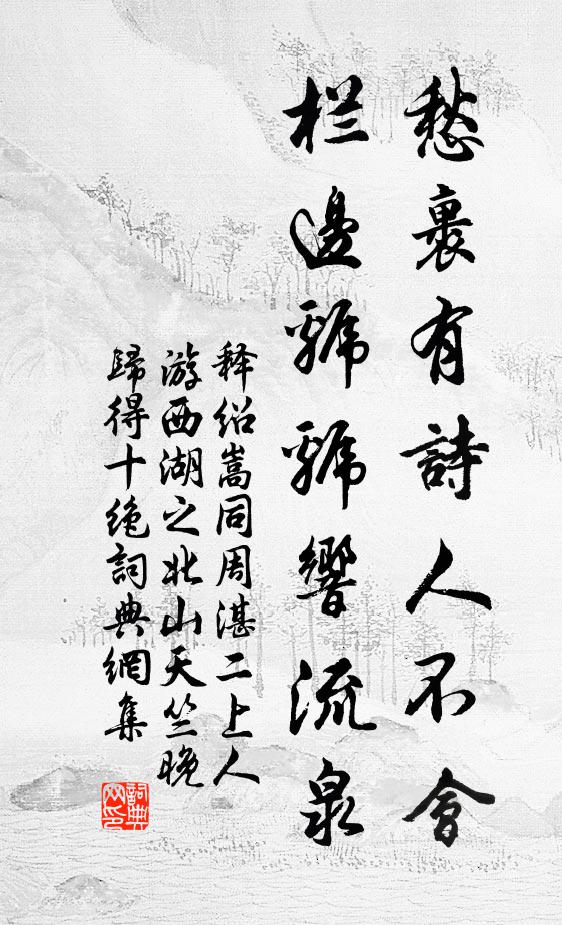 愁裏有詩人不會
栏邊虢虢響流泉
释绍嵩同周湛二上人
游西湖之北山天竺晚
歸得十绝詞典網集
詞典
网印